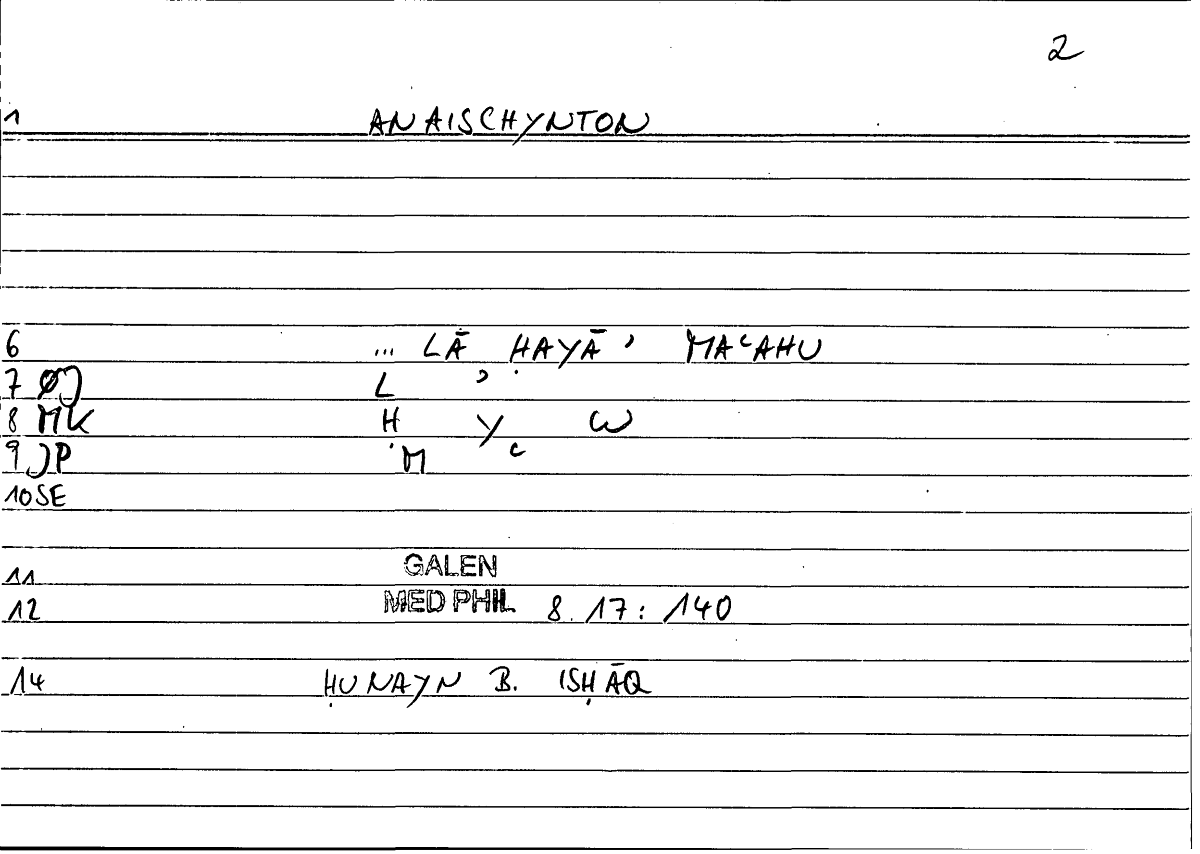 2
1 ANAISCHYNTON
6 ... LĀ ḤAYĀʾ MAʿAHU
7 ØJ L ʾ
8 MK H Y W
9 JP M ʿ
10 SE
11 GALEN
12 MED PHIL 8.17: 140
14 ḤUNAYN B. ISḤĀQ